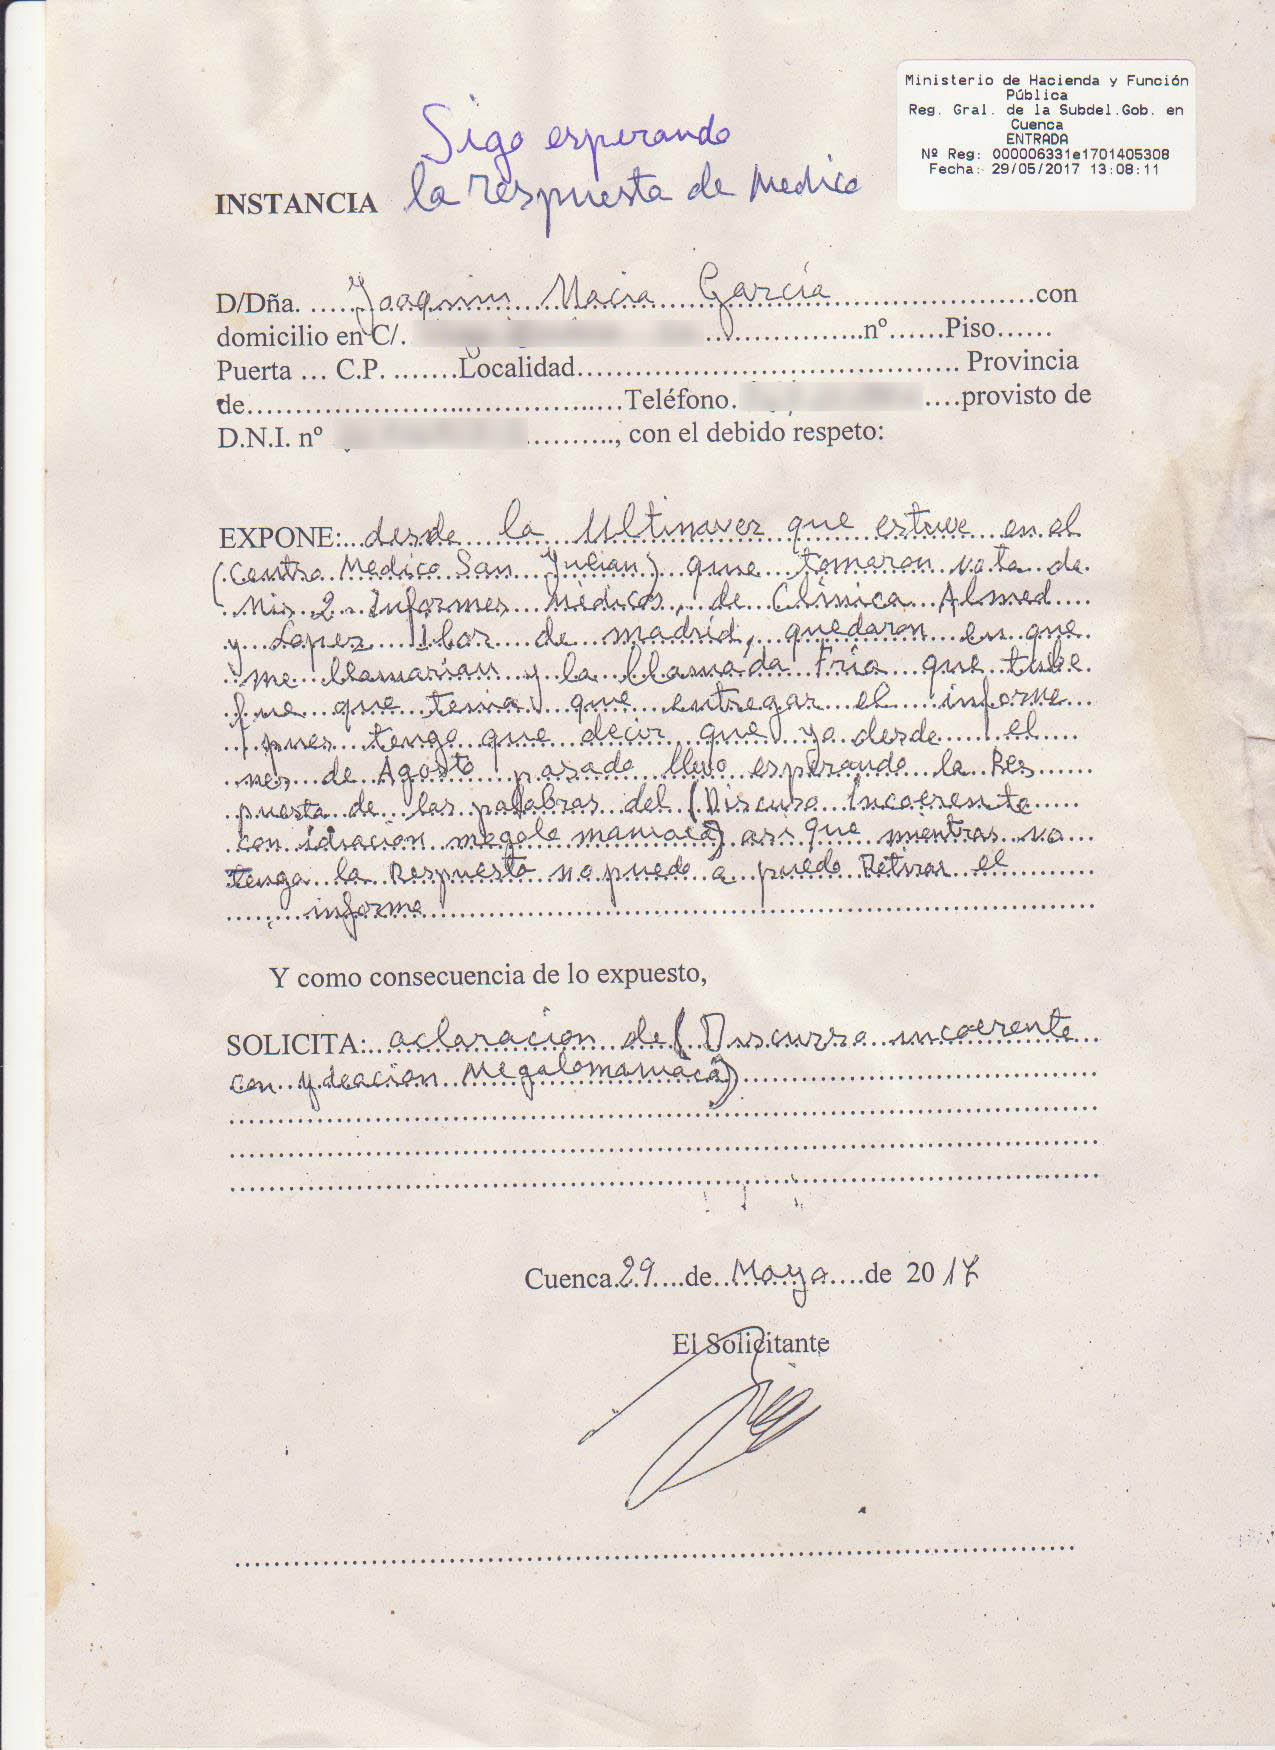 Ministerio de Hacienda y Función
Pública
Reg. Gral. de la Subdel.Gob. en
Cuenca
ENTRADA
Nº Reg: 000006331e1701405308
Fecha: 29/05/2017 13:08:11
Sigo esperando
la respuesta de Medico
INSTANCIA
D/Dña. ..... Joaquin Macia García ........................con
domicilio en C/. ....................nº......Piso......
Puerta ... C.P. ........Localidad............................................... Provincia
de..............................................Teléfono. ....provisto de
D.N.I. nº ..........., con el debido respeto:
EXPONE:...desde la Ultimavez que estuve en el
(Centro Medico San Julian) que tomaron nota de
Mis 2 Informes Médicos, de Clínica Almed
y Lopez Ibor de madrid, quedaron en que
me llamarian y la llamada Fría que tube
fue que tenia que entregar el informe
pues tengo que decir que ya desde el
mes de Agosto pasado llevo esperando la Res
puesta de las palabras del (Discurso Incoerente
con idiacion megalo maniaca) asi que mientras no
tenga la Respuesta no puedo á puedo Retirar el
informe
Y como consecuencia de lo expuesto,
SOLICITA:..aclaracion de (Discurso incoerente
con ydeacion Megalomaniaca)
Cuenca.29....de..Mayo....de 2017
El Solicitante